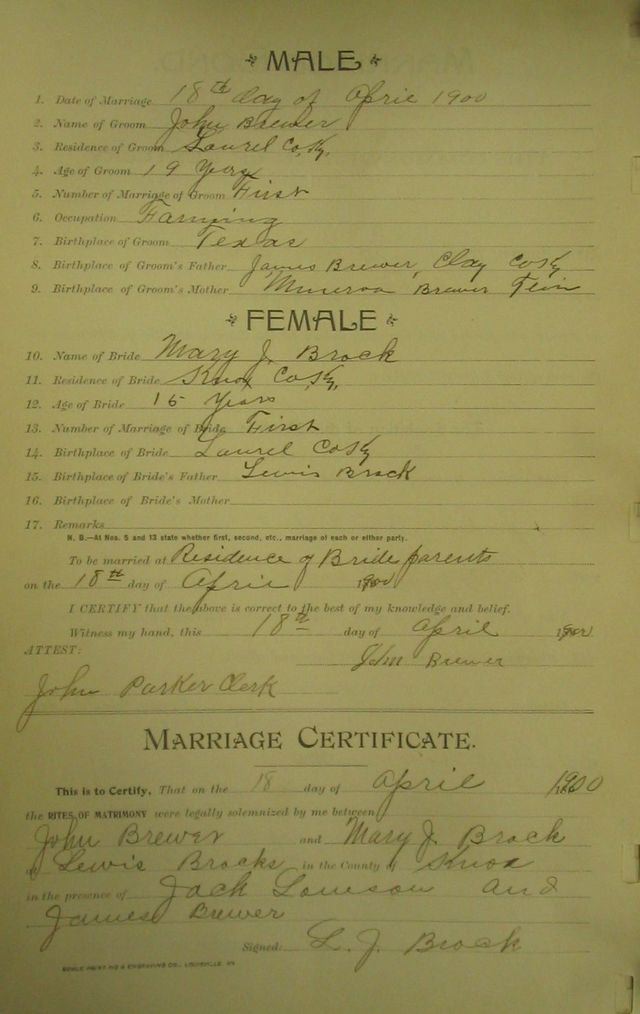 MALE
1. Date of Marriage 18th day of April 1900
2. Name of Groom John Brewer
3. Residence of Groom Laurel Co Ky.
4. Age of Groom 19 Years
5. Number of Marriage of Groom First
6. Occupation Farming
7. Birthplace of Groom Texas
8. Birthplace of Groom's Father James Brewer, Clay Co Ky
9. Birthplace of Groom's Mother Minerva Brewer
FEMALE
10. Name of Bride Mary J. Brock
11. Residence of Bride Knox Co Ky.
12. Age of Bride 15 Years
13. Number of Marriage of Bride First
14. Birthplace of Bride Laurel Co Ky
15. Birthplace of Bride's Father Lewis Brock
16. Birthplace of Bride's Mother
17. Remarks
N. B.—At Nos. 5 and 13 state whether first, second, etc., marriage of each or either party.
To be married at Residence of Bride parents
on the 18th day of April 1900
I CERTIFY that the above is correct to the best of my knowledge and belief.
Witness my hand, this 18th day of April 1900
ATTEST: John Brewer
John Parker Clerk
MARRIAGE CERTIFICATE.
This is to Certify, That on the 18 day of April 1900
the RITES OF MATRIMONY were legally solemnized by me between
John Brewer and Mary J. Brock
at Lewis Brocks in the County of Knox
in the presence of Jack and
James Brewer
Signed: L. J. Brock
PRINTING & ENGRAVING CO., LOUISVILLE, KY.